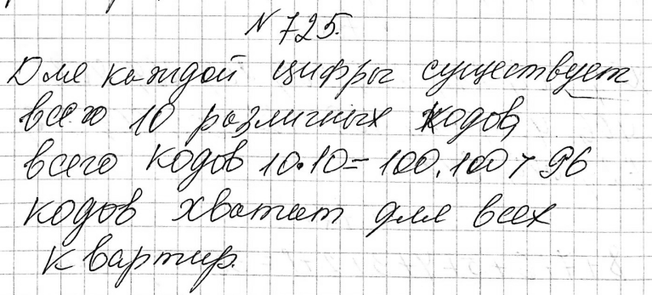 № 725.
Для каждой цифры существует
всего 10 различных кодов,
всего кодов 10·10=100, 100 > 96
кодов хватит для всех
квартир.